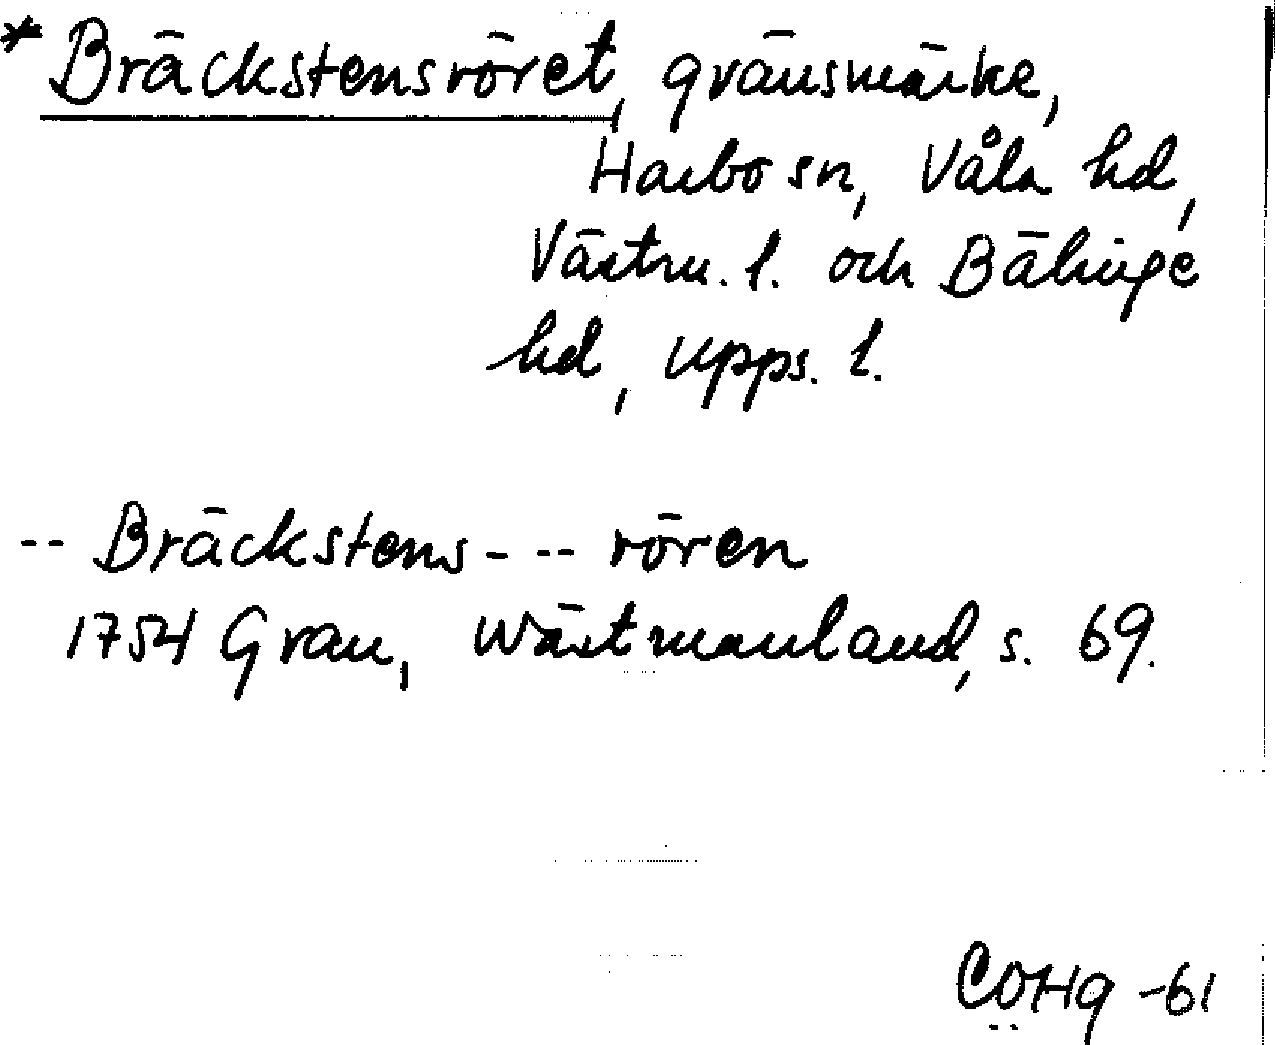 * Bräckstensröret, gränsmärke,
Harbo sn, Våla hd,
Västm. l. och Bälinge
hd, Upps. l.
-- Bräckstens- -- rören
1754 Grau, Wästmanland, s. 69.
COHg -61